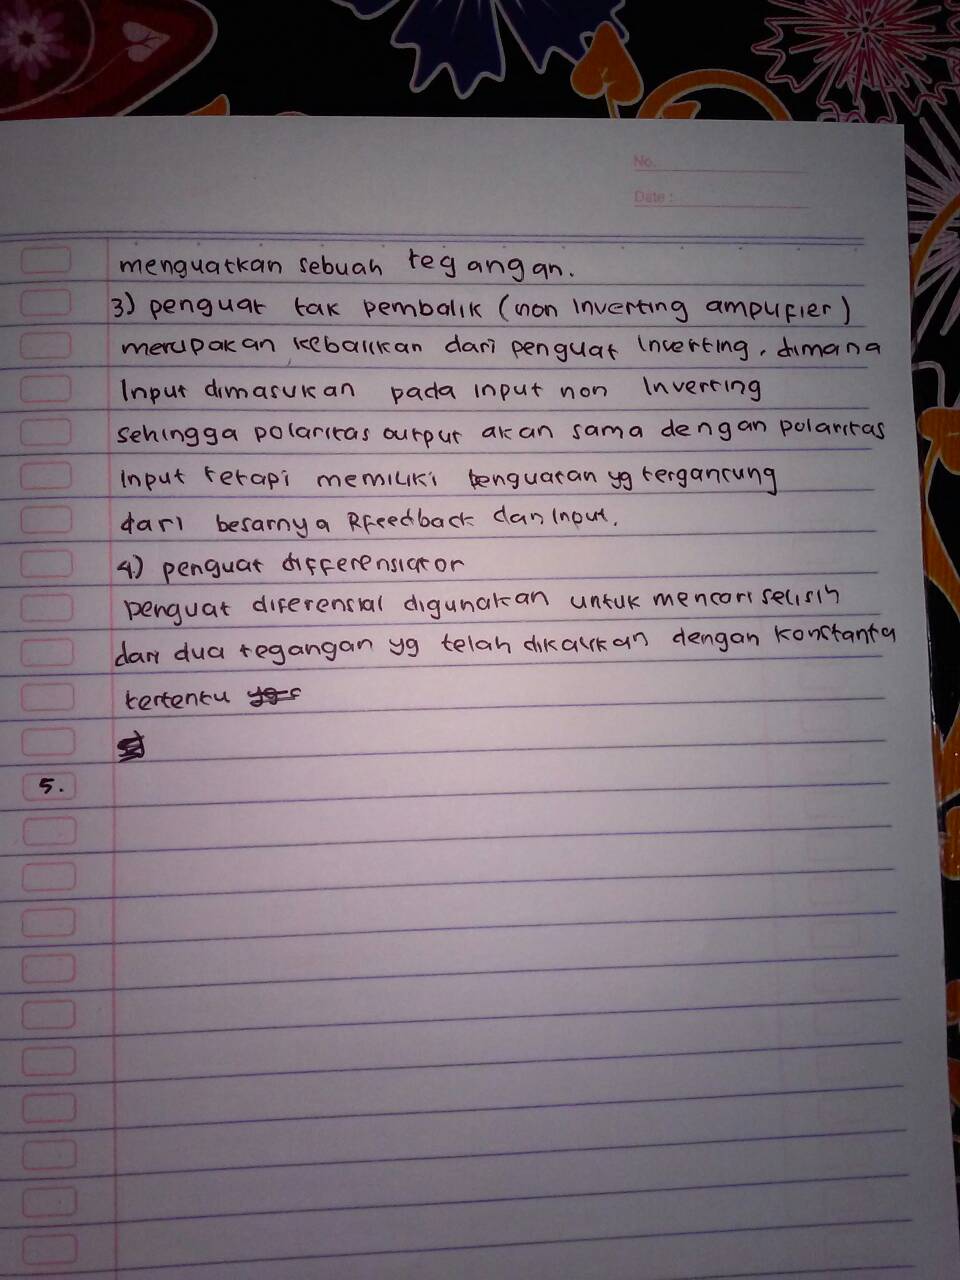 No.
Date :
menguatkan sebuah tegangan.
3) penguat tak pembalik (non Inverting amplifier)
merupakan kebalikan dari penguat Inverting, dimana
Input dimasukan pada input non Inverting
sehingga polaritas output akan sama dengan polaritas
Input tetapi memiliki penguatan yg tergantung
dari besarnya Rfeedback dan Input.
4) penguat differensiator
penguat diferensial digunakan untuk mencari selisih
dari dua tegangan yg telah dikalikan dengan konstanta
tertentu
5.